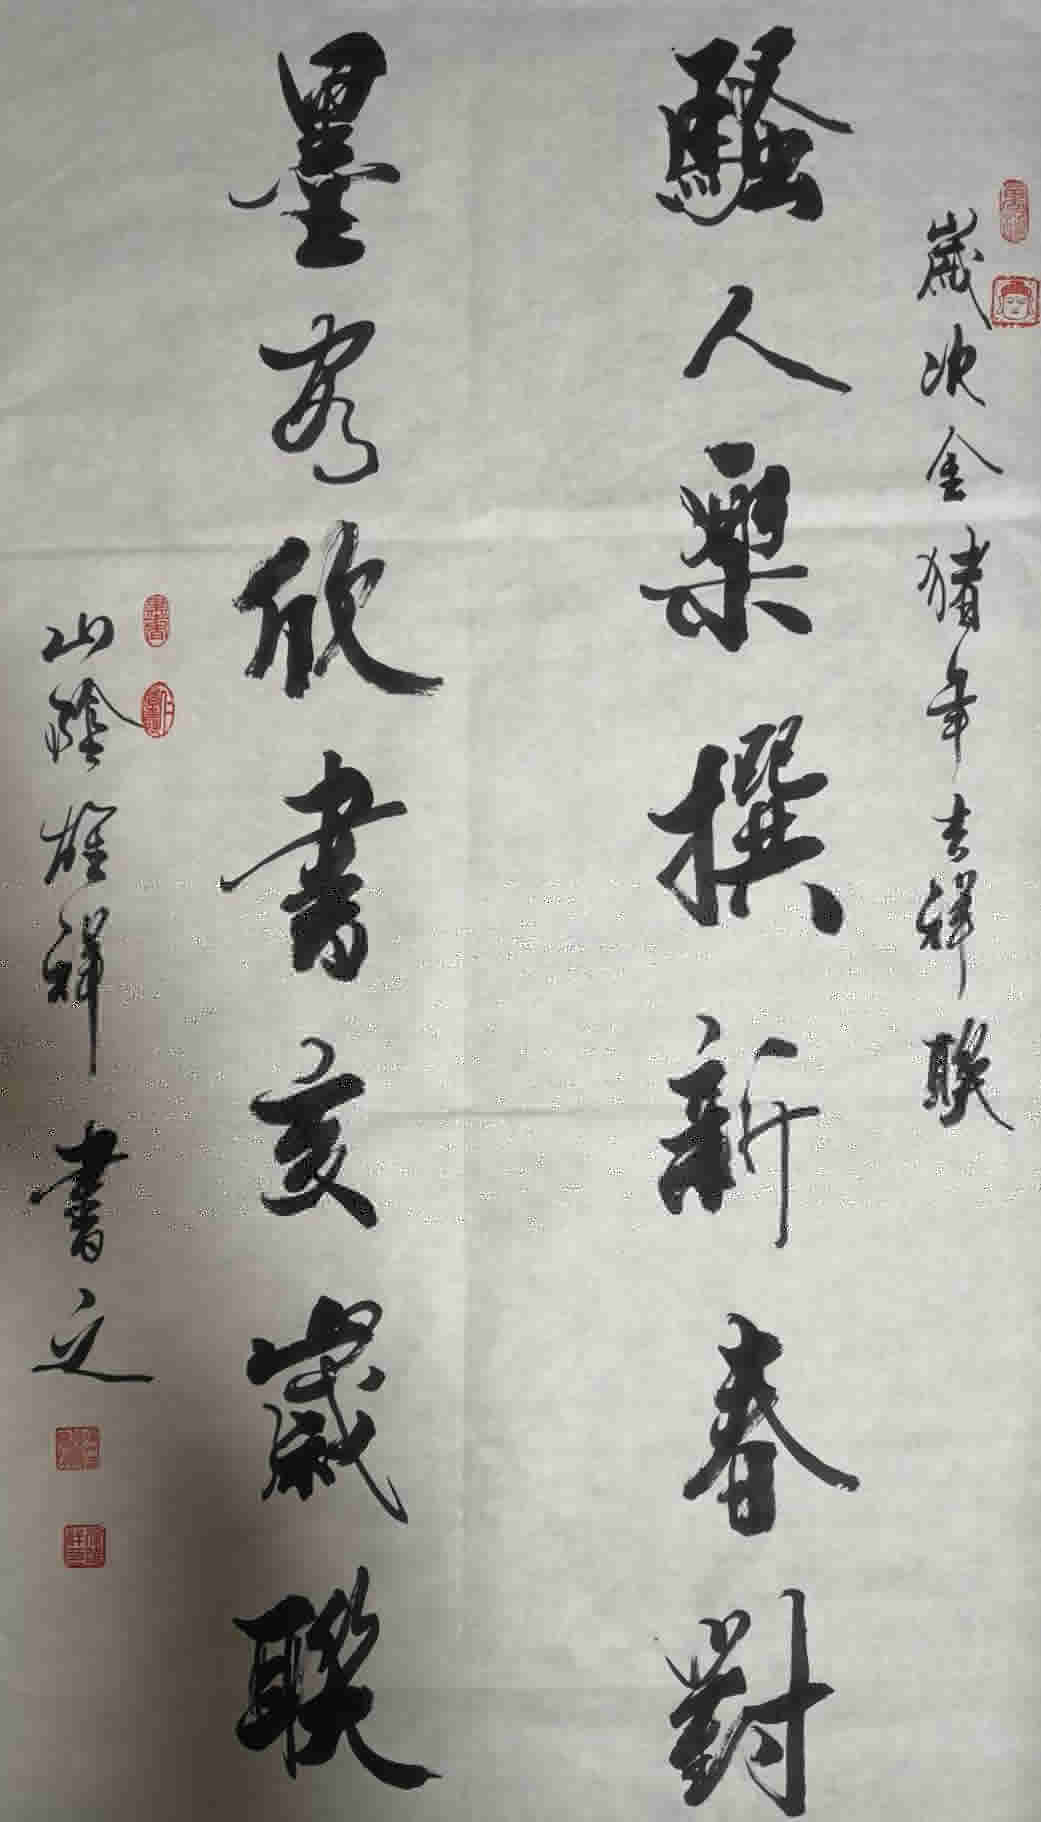 歲次金猪年吉祥聯
騷人樂撰新春對
墨客欣書亥歲聯
山陰雄祥書之